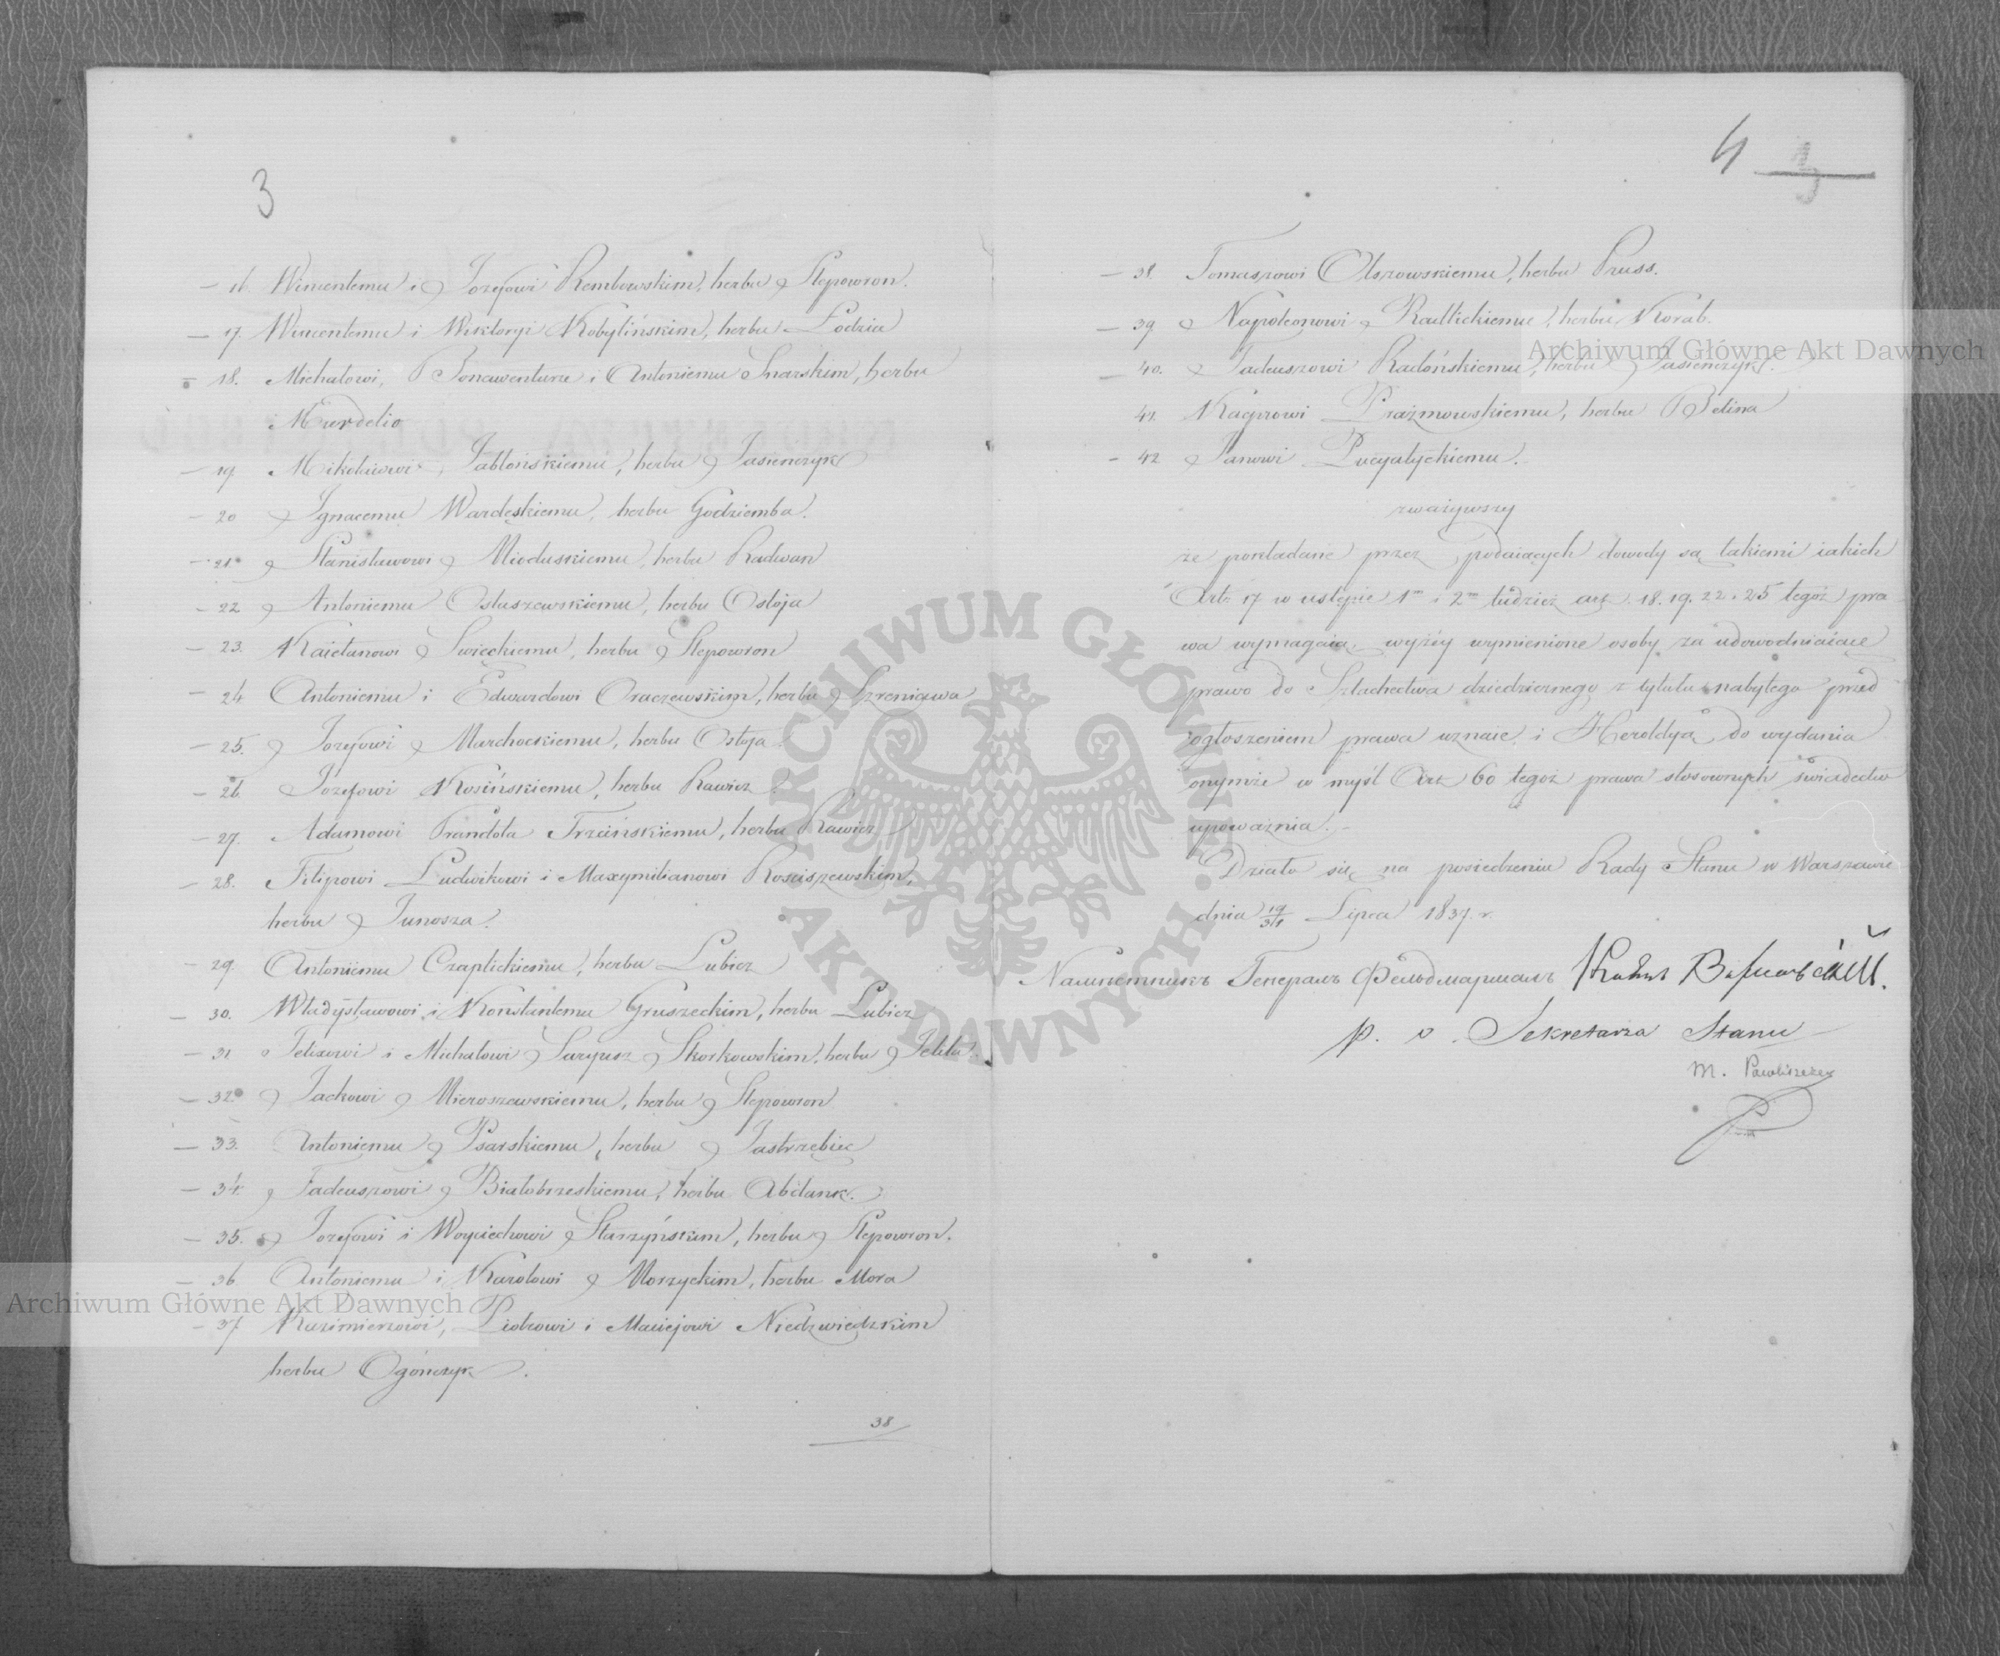 3
— 16. Wincentemu i Jozefowi Rembowskim, herbu Slepowron.
— 17. Wincentemu i Wiktoryi Kobylińskim, herbu Łodzia
— 18. Michałowi, Bonawenturze i Antoniemu Snarskim, herbu
Murdelio
— 19. Mikołaiowi Jabłońskiemu, herbu Jasienczyk
— 20 Ignacemu Wardęskiemu, herbu Godziemba.
— 21. Stanisławowi Mioduskiemu, herbu Radwan
— 22 Antoniemu Ostaszewskiemu, herbu Ostoja
— 23. Kaietanowi Swięckiemu, herbu Slepowron
— 24 Antoniemu i Edwardowi Oraczewskim, herbu Szreniawa
— 25. Jozefowi Marchockiemu, herbu Ostoja.
— 26. Józefowi Kosińskiemu, herbu Rawicz.
— 27. Adamowi Prandota Trzcińskiemu, herbu Rawicz
— 28. Filipowi Ludwikowi i Maxymilianowi Rościszewskim,
herbu Junosza.
— 29. Antoniemu Czaplickiemu, herbu Lubicz
— 30. Władysławowi i Konstantemu Gruszeckim, herbu Lubicz
— 31 Felixowi i Michałowi Saryusz Skorkowskim, herbu Jelita.
— 32 Jackowi Mieroszewskiemu, herbu Slepowron
— 33. Antoniemu Psarskiemu, herbu Jastrzębiec
— 34. Tadeuszowi Białobrzeskiemu, herbu Abdank.
— 35. Jozefowi i Woyciechowi Starzyńskim, herbu Slepowron.
— 36 Antoniemu i Karolowi Morzyckim, herbu Mora
— 37 Kazimierzowi, Piotrowi i Maciejowi Niedzwiedzkim
herbu Ogończyk.
38
4 3
— 38. Tomaszowi Olszowskiemu, herbu Pruss.
— 39 Napoleonowi Radlickiemu, herbu Korab.
— 40. Tadeuszowi Radońskiemu, herbu Jasienczyk.
— 41. Kacprowi Prażmowskiemu, herbu Belina
— 42 Janowi Pucyatyckiemu.
zważywszy
że pokładane przez podaiących dowody są takiemi iakich
Art: 17 w ustępie 1m i 2m tudzież art. 18. 19. 22 i 25 tegoż pra
wa wymagaią, wyżey wymienione osoby za udowodniaiące
prawo do Szlachectwa dziedzicznego z tytułu nabytego przed
ogłoszeniem prawa uznaie i Heroldyą do wydania
onymże w myśl Art 60 tegoż prawa stosownych świadectw
upoważnia.—
Działo się na posiedzeniu Rady Stanu w Warszawie
dnia 19/31 Lipca 1837. r.
Намѣстникъ Генералъ Фельдмаршалъ
p. o. Sekretarza Stanu
M. Pawliszczew
Archiwum Główne Akt Dawnych
Archiwum Główne Akt Dawnych
ARCHIWUM GŁÓWNE · AKT DAWNYCH ·